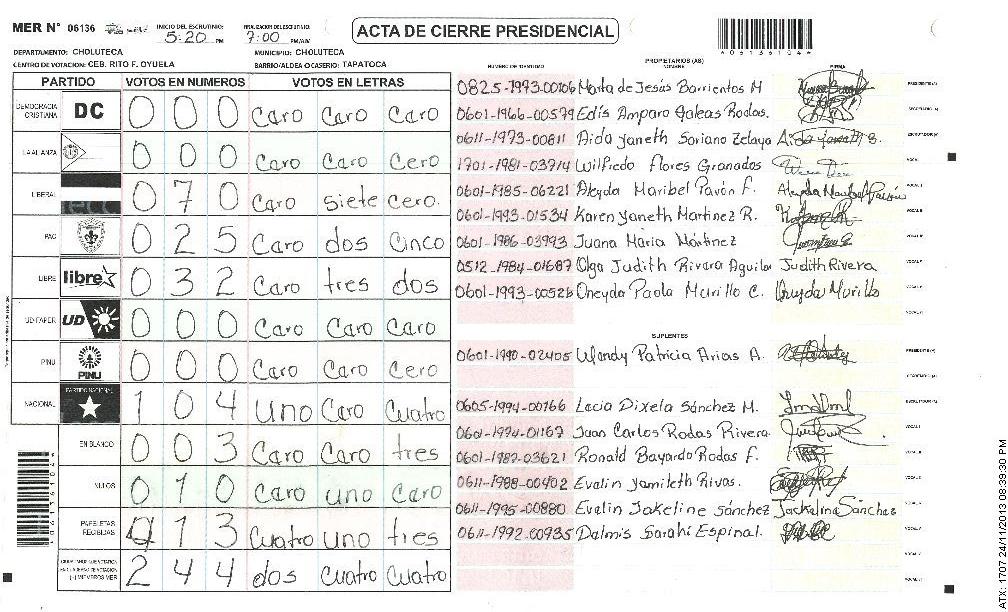 MER N° 06136 INICIO DEL ESCRUTINIO: 5:20 PM FINALIZACION DEL ESCRUTINIO: 7:00 PM/AM ACTA DE CIERRE PRESIDENCIAL
*06136104*
DEPARTAMENTO: CHOLUTECA MUNICIPIO: CHOLUTECA
CENTRO DE VOTACION: CEB. RITO F. OYUELA BARRIO/ALDEA O CASERIO: TAPATOCA
PARTIDO VOTOS EN NUMEROS VOTOS EN LETRAS
DEMOCRACIA CRISTIANA DC 0 0 0 Caro Caro Caro
LA ALIANZA 0 0 0 Caro Caro Cero
LIBERAL 0 7 0 Caro siete cero.
PAC 0 2 5 Caro dos Cinco
LIBRE libre 0 3 2 Caro tres dos
UD-FAPER UD 0 0 0 Caro Caro Caro
PINU PINU 0 0 0 Caro Caro Cero
NACIONAL PARTIDO NACIONAL 1 0 4 Uno Caro Cuatro
EN BLANCO 0 0 3 Caro Caro tres
NULOS 0 1 0 Caro uno Caro
PAPELETAS RECIBIDAS 4 1 3 Cuatro uno tres
2 4 4 dos Cuatro Cuatro
PROPIETARIOS (AS)
NUMERO DE IDENTIDAD NOMBRE FIRMA
0825-1993-00106 Marta de Jesús Barrientos M PRESIDENTE (A)
0601-1966-00579 Edis Amparo Galeas Rodas. SECRETARIO (A)
0611-1973-00811 Aida Janeth Soriano Zelaya ESCRUTADOR (A)
1701-1981-03714 Wilfredo Flores Granados VOCAL I
0601-1985-06221 Aleyda Maribel Pavón F. Aleyda Maribel Pavón
0601-1993-01534 Karen Yaneth Martinez R.
0601-1986-03993 Juana Maria Martinez
0512-1984-01687 Olga Judith Rivera Aguilar Judith Rivera
0601-1993-00526 Oneyda Paola Murillo C. Oneyda Murillo
SUPLENTES
0601-1990-02405 Wendy Patricia Arias A. PRESIDENTE (A)
SECRETARIO (A)
0605-1994-00166 Lecia Dixela Sánchez M. ESCRUTADOR (A)
0601-1974-01167 Juan Carlos Rodas Rivera.
0601-1982-03621 Ronald Bayardo Rodas F.
0611-1988-00402 Evelin Yamileth Rivas.
0611-1995-00880 Evelin Jakeline Sánchez Jackelina Sánchez
0611-1992-00935 Dalmis Sarahi Espinal.
*06136104*
ATX: 1707 24/11/2013 08:39:30 PM